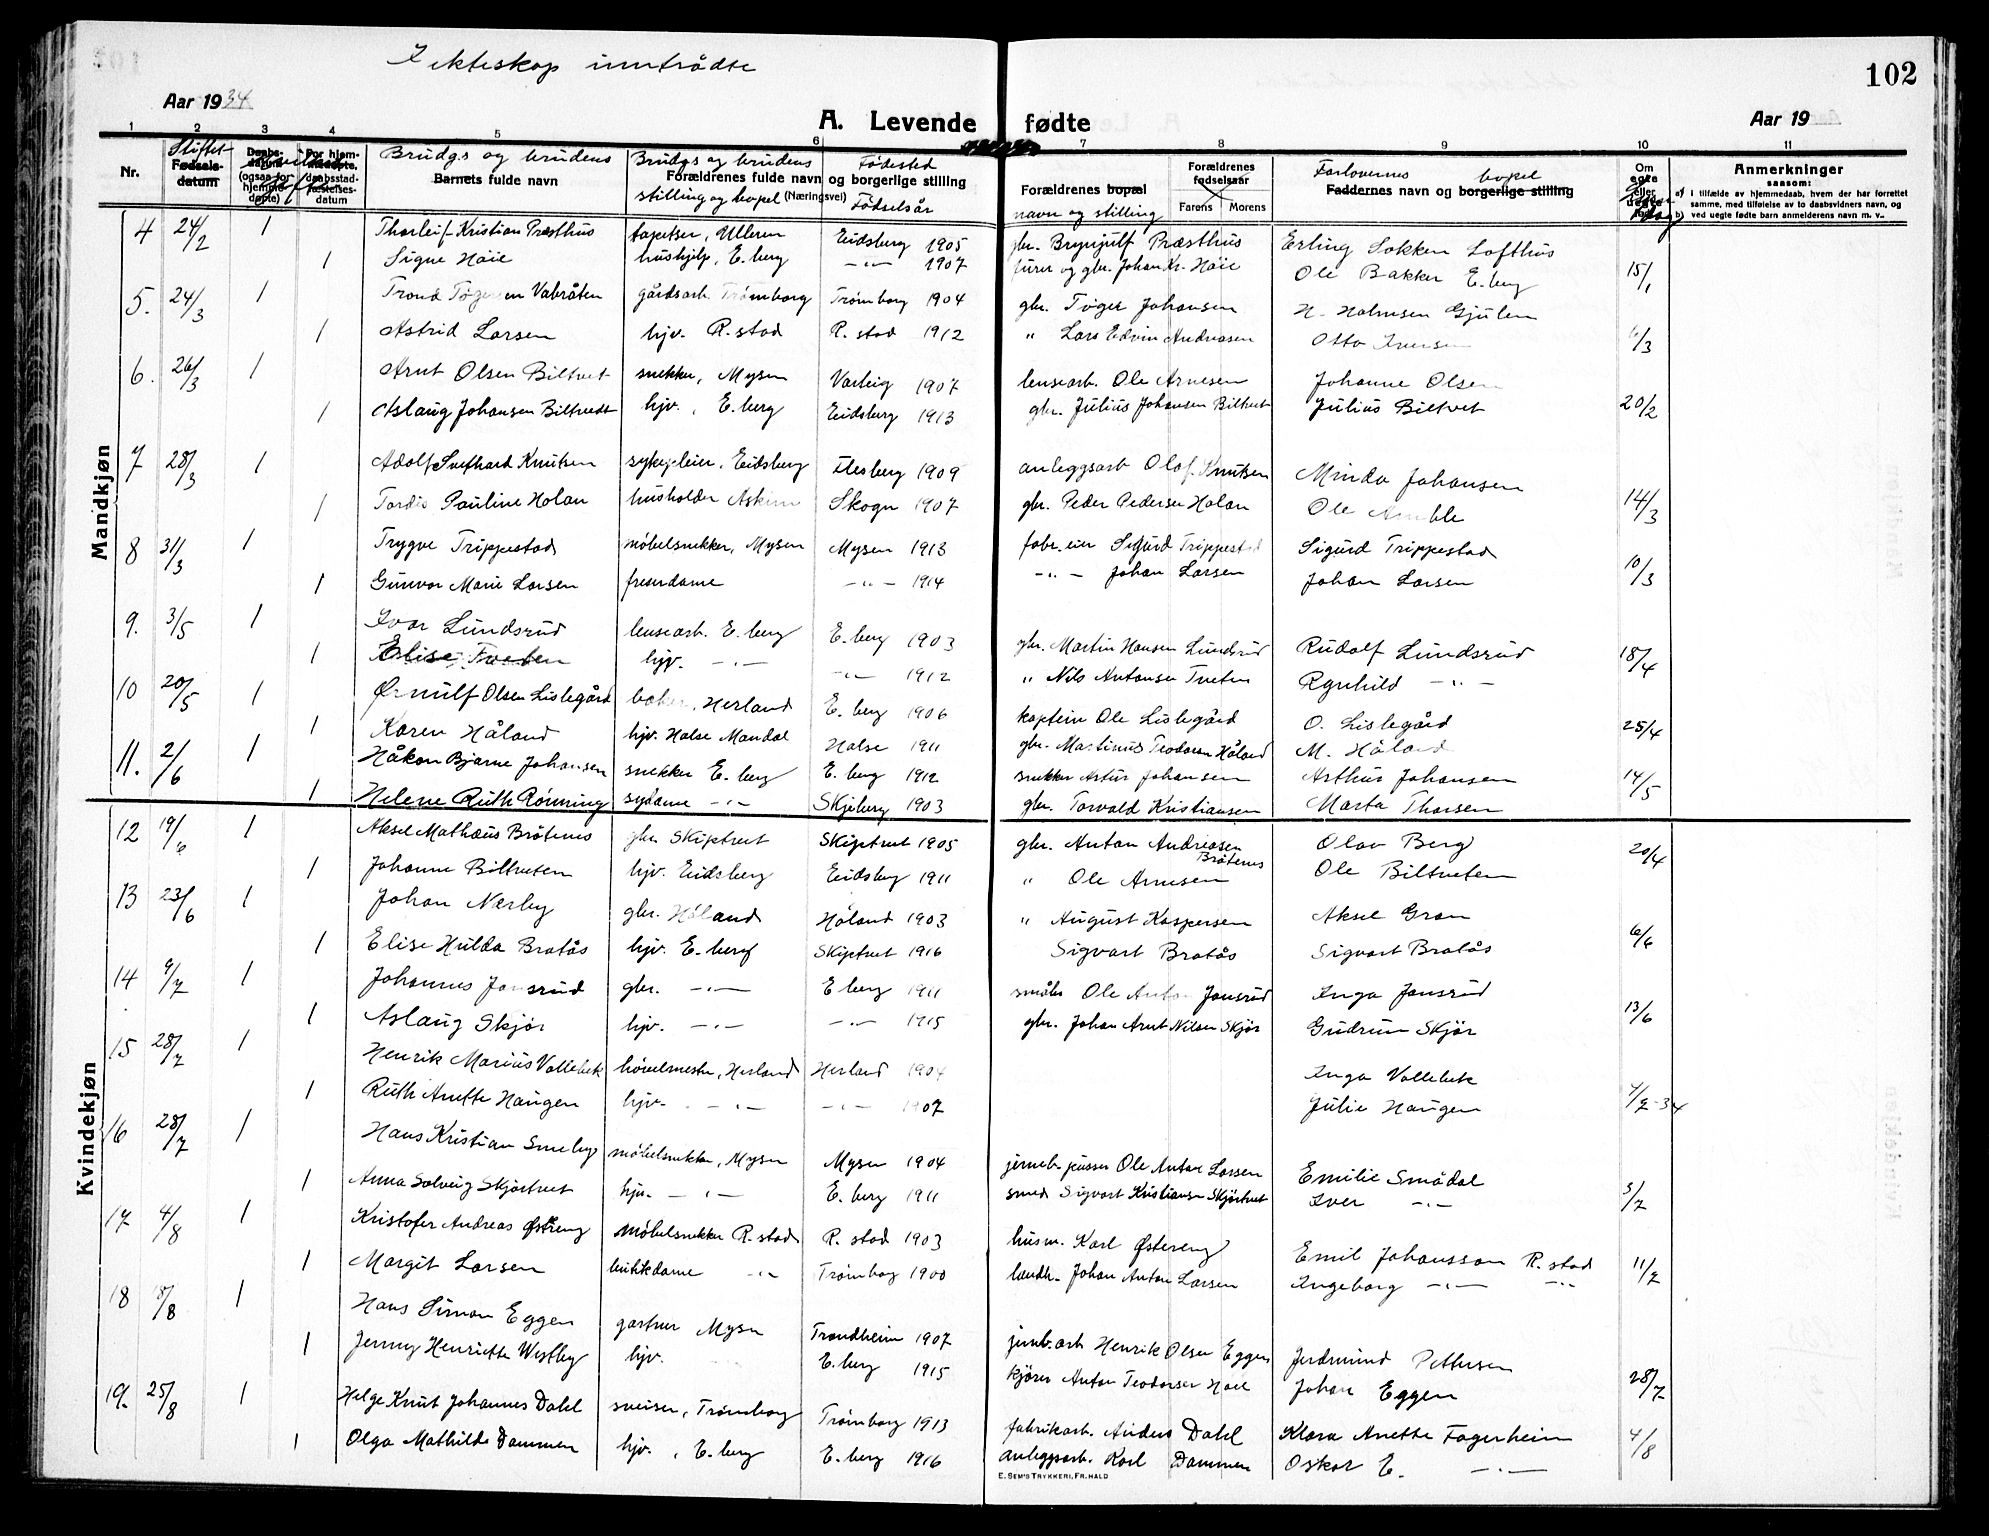 Ekteskap inntrådte
102
Aar 1934
A. Levende fødte
Aar 19
1 2 3 4 5 6 7 8 9 10 11
Nr.
Stiftet
Fødsels-datum
Daabs-datum (ogsaa for hjemme-døpte)
For hjem-medøpte, daabsstad-fæstelses-datum
Brudgs og brudens
Barnets fulde navn
Brudgs og brudens Fødested
Forældrenes fulde navn og borgerlige stilling
(Næringsvei)
stilling og bopel Fødselsår
Forældrenes bopæl
navn og stilling
Forældrenes fødselsaar
Farens Morens
Forlovernes bopel
Faddernes navn og borgerlige stilling
Om egte eller uegte født
Anmerkninger
saasom:
a) i tilfælde av hjemmedaab, hvem der har forrettet samme, med tilføielse av to daabsvidners navn, og
b) ved uegte fødte barn anmelderens navn m. v.
Mandkjøn
4 24/2 1 Thorleif Kristian Præsthus tapetser, Ulleren Eidsberg 1905 gbr. Brynjulf Præsthus Erling Sokken Lofthus
1 Signe Høie hushjelp, E.berg -"- 1907 furer og gbr. Johan Kr. Høie Ole Bakker E.berg 15/1
5. 24/3 1 Trond Tøgersen Vabråten gårdsarb. Trømborg Trømborg 1904 gbr. Tøger Johansen H. Holmsen Gjulem
1 Astrid Larsen hjv. R.stad R.stad 1912 " Lars Edvin Andreasen Otto Iversen /3
6. 26/3 1 Arnt Olsen Biltvet snekker, Mysen Varteig 1907 lensearb. Ole Arnesen Johanne Olsen
1 Aslaug Johansen Biltvedt hjv., E.berg Eidsberg 1913 gbr. Julius Johansen Biltvet Julius Biltvet 20/2
7 28/3 1 Adolf Knutsen sykepleier, Eidsberg Flesberg 1909 anleggsarb Olaf Knutsen Minda Johansen
1 Tordis Pauline Holan husholder Askim Skogn 1907 gbr. Peder Pedersen Holan Ole Amble 14/3
8 31/3 1 Trygve Trippestad møbelsnekker, Mysen Mysen 1913 fabr.eier Sigurd Trippestad Sigurd Trippestad
1 Gunvor Marie Larsen freserdame -"- 1914 -"- Johan Larsen Johan Larsen 10/3
9. 3/5 1 Ivar Lundsrud lensearb. E.berg E.berg 1903 gbr. Martin Hansen Lundsrud Rudolf Lundsrud
1 Elise Tveten hjv. -"- -"- 1912 " Nils Antonsen Tveten Ragnhild -"- 18/4
10 20/5 1 Ørnulf Olsen Lislegård baker, Herland E.berg 1906 kaptein Ole Lislegård O. Lislegård
1 Karen Håland hjv. Halse Mandal Halse 1911 gbr. Martinus Teodorsen Håland M. Håland 25/4
11. 2/6 1 Håkon Bjarne Johansen snekker E.berg E.berg 1912 snekker Artur Johansen Arthur Johansen
1 Helene Ruth Rønning sydame -"- Skjeberg 1903 gbr. Torvald Kristiansen Marta Thorsen 14/5
Kvindekjøn
12 19/6 1 Aksel Mathæus Bråtenes gbr Skiptvet Skiptvet 1905 gbr. Anton Andreasen Bråtenes Olav Berg
1 Johanne Biltveten hjv. Eidsberg Eidsberg 1911 " Ole Arnesen Ole Biltveten 20/4
13 23/6 1 Johan Nerby gbr. Høland Høland 1903 " August Kaspersen Aksel Gran
1 Elise Hulda Bratås hjv. E.berg Skiptvet 1916 Sigvart Bratås Sigvart Bratås 6/6
14 9/7 1 Johannes Jonsrud gbr. -"- E berg 1911 småbr Ole Anton Jonsrud Inga Jonsrud
1 Aslaug Skjør hjv. -"- -"- 1915 gbr. Johan Arnt Nilsen Skjør Gudrun Skjør 13/6
15 28/7 1 Henrik Marius Vallebek høvelmester, Herland Herland 1904 Inga Vallebek
1 Ruth Anette Haugen hjv. -"- -"- 1907 Julie Haugen 7/7-34
16 28/7 1 Hans Kristian Smeby møbelsnekker, Mysen Mysen 1904 jernb.pusser Ole Anton Larsen Emilie Smådal
1 Anna Solveig Skjørtvet hjv. -"- E.berg 1911 smed Sigvart Kristiansen Skjørtvet Iver -"- 3/7
17 4/8 1 Kristofer Andreas Østreng møbelsnekker R.stad R.stad 1903 husm. Karl Østereng Emil Johansson R.stad
1 Margit Larsen butikdame -"- Trømborg 1900 landh. Johan Anton Larsen Ingeborg -"- -"- 11/7
18 18/8 1 Hans Simon Eggen gartner Mysen Trondheim 1907 jernb.arb Henrik Olsen Eggen Jerdmund Pettersen
1 Jenny Henriette Westby hjv. E.berg 1915 kjører Anton Teodorsen Hoel Johan Eggen 28/7
19. 25/8 1 Helge Knut Johannes Dahl sveiser, Trømborg Trømborg 1913 fabrikarb. Anders Dahl Klara Anette Fagerheim
1 Olga Mathilde Dammen hjv., E.berg E.berg 1916 anleggsarb. Karl Dammen Oskar E. -"- 4/8
E. SEM'S TRYKKERI, FR.HALD